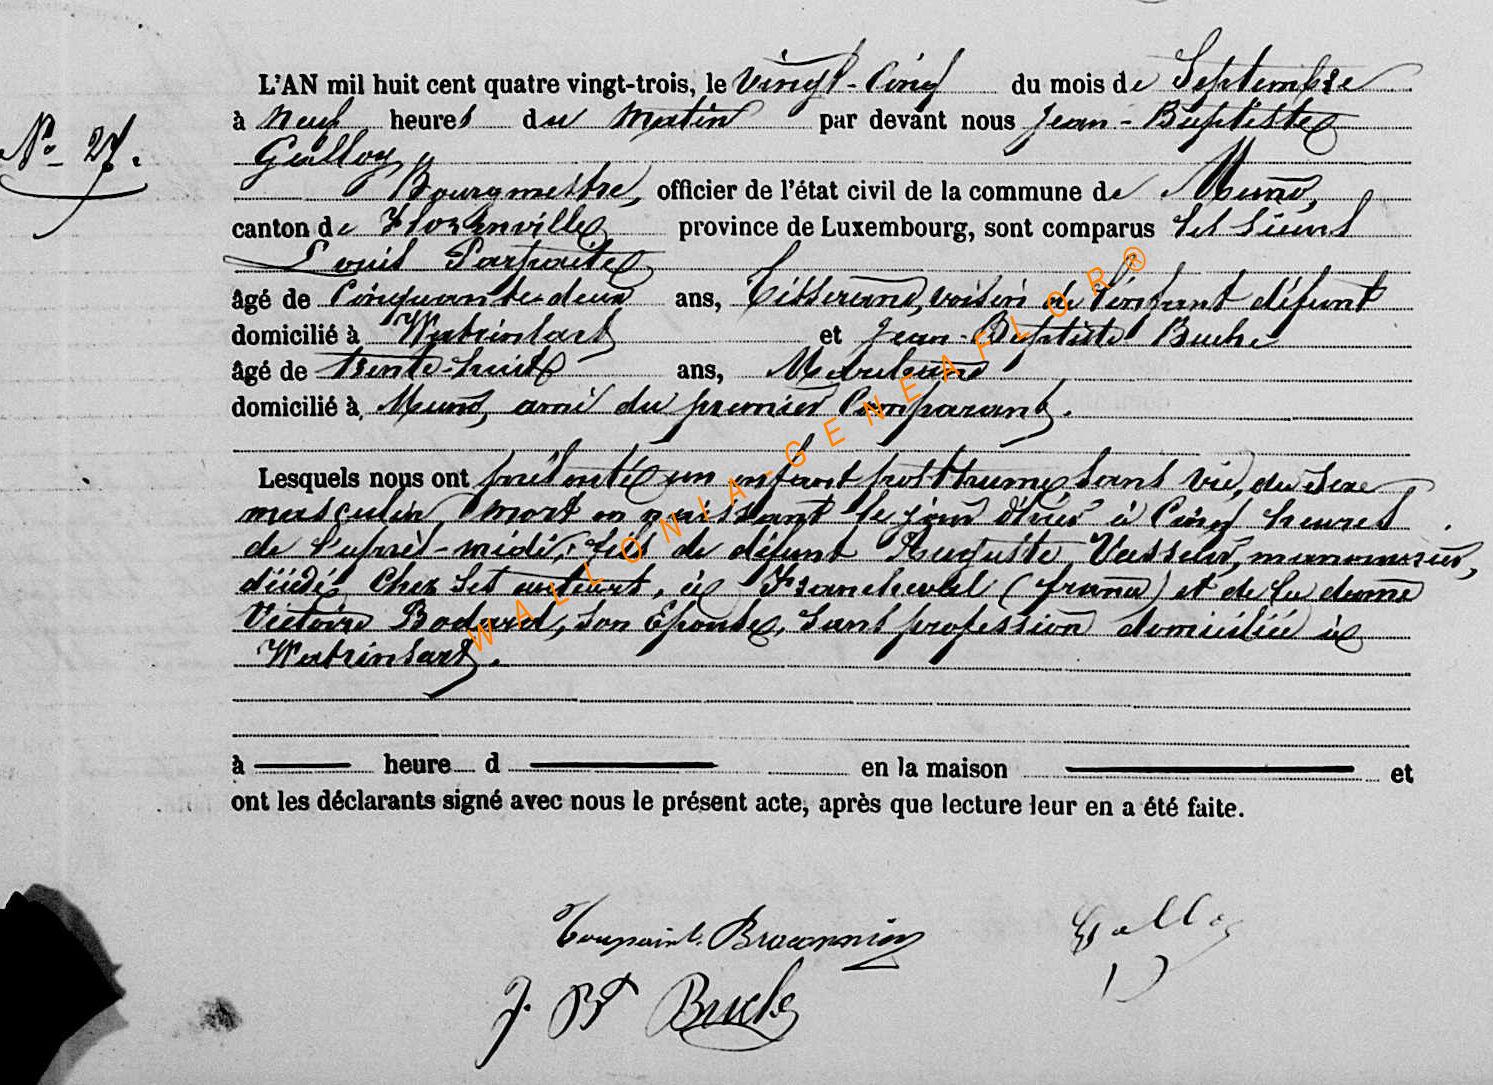 L'AN mil huit cent quatre vingt-trois, le vingt-cinq du mois de Septembre
N° 27.
à neuf heures du matin par devant nous Jean-Baptiste
Galloy
Bourgmestre, officier de l'état civil de la commune de Muno,
canton de Florenville province de Luxembourg, sont comparus les sieurs
Louis Parfaite
âgé de Cinquante-deux ans, Tisserand, voisin de l'enfant défunt
domicilié à Watrinsart et Jean-Baptiste Buche
âgé de trente-huit ans, Marchand
domicilié à Muno, ami du premier Comparant.
Lesquels nous ont présenté un enfant posthume sans vie, du sexe
masculin, mort en naissant le jour d'hier à Cinq heures
de l'après-midi, fils de défunt Auguste Vasseur, manouvrier,
décédé chez ses auteurs, à Francheval (france) et de la dame
Victoire Bodard, son Epouse, sans profession domiciliée à
Watrinsart.
à heure d en la maison et
ont les déclarants signé avec nous le présent acte, après que lecture leur en a été faite.
Toupaint Galloy
J. Bt Buche
WALLONIA-GENEAFLOR®